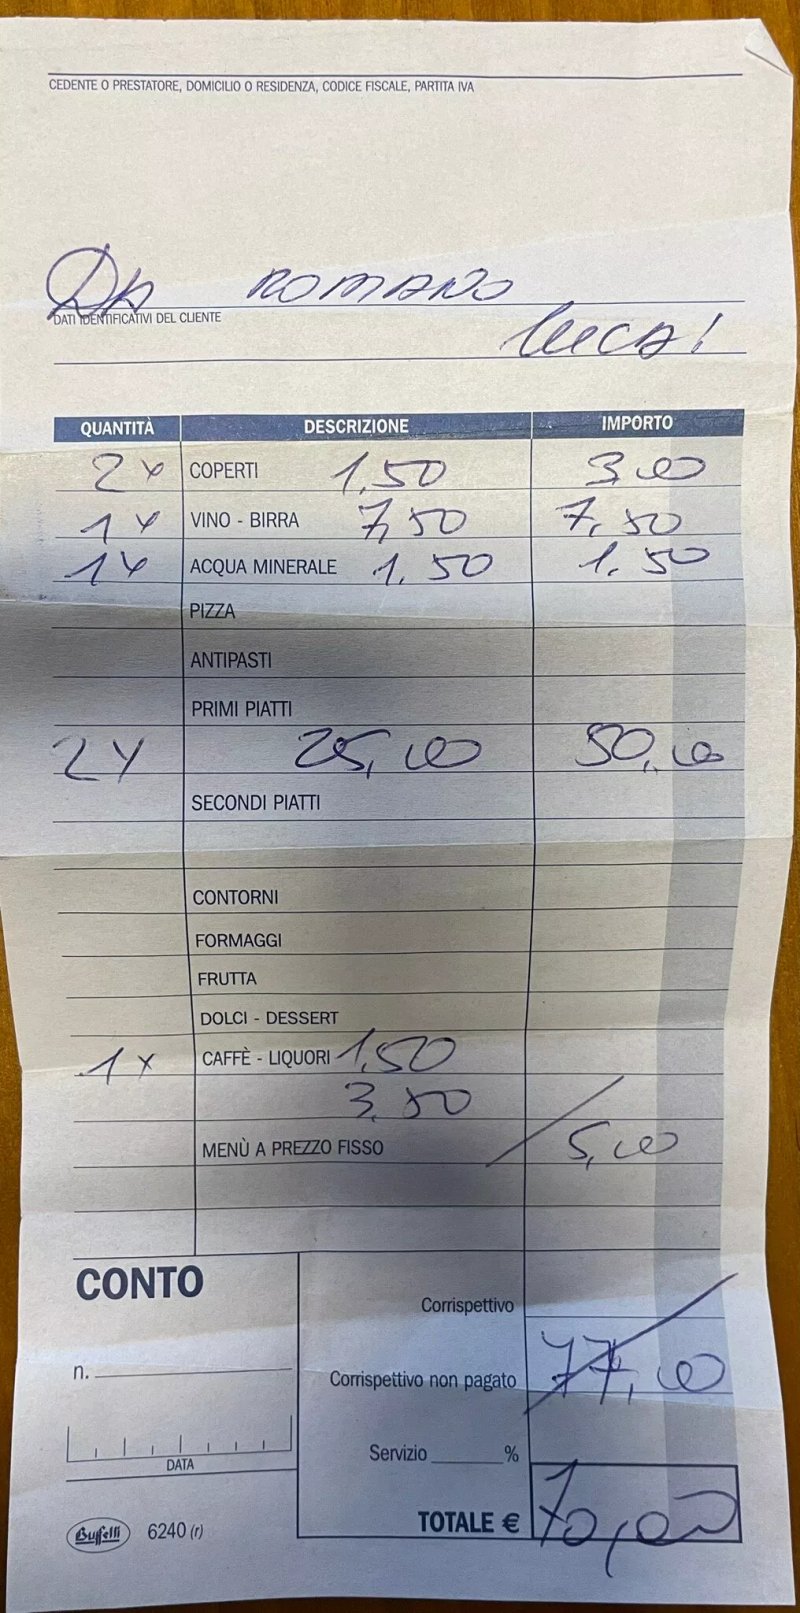 CEDENTE O PRESTATORE, DOMICILIO O RESIDENZA, CODICE FISCALE, PARTITA IVA
DA ROMANO
DATI IDENTIFICATIVI DEL CLIENTE
QUANTITÀ DESCRIZIONE IMPORTO
2x COPERTI 1,50 3,00
1x VINO - BIRRA 7,50 7,50
1x ACQUA MINERALE 1,50 1,50
PIZZA
ANTIPASTI
PRIMI PIATTI
2x 25,00 50,00
SECONDI PIATTI
CONTORNI
FORMAGGI
FRUTTA
DOLCI - DESSERT
1x CAFFÈ - LIQUORI 1,50
3,50
MENÙ A PREZZO FISSO 5,00
CONTO
Corrispettivo
n. Corrispettivo non pagato 77,00
Servizio %
DATA
TOTALE € 70,00
Buffelli 6240 (r)